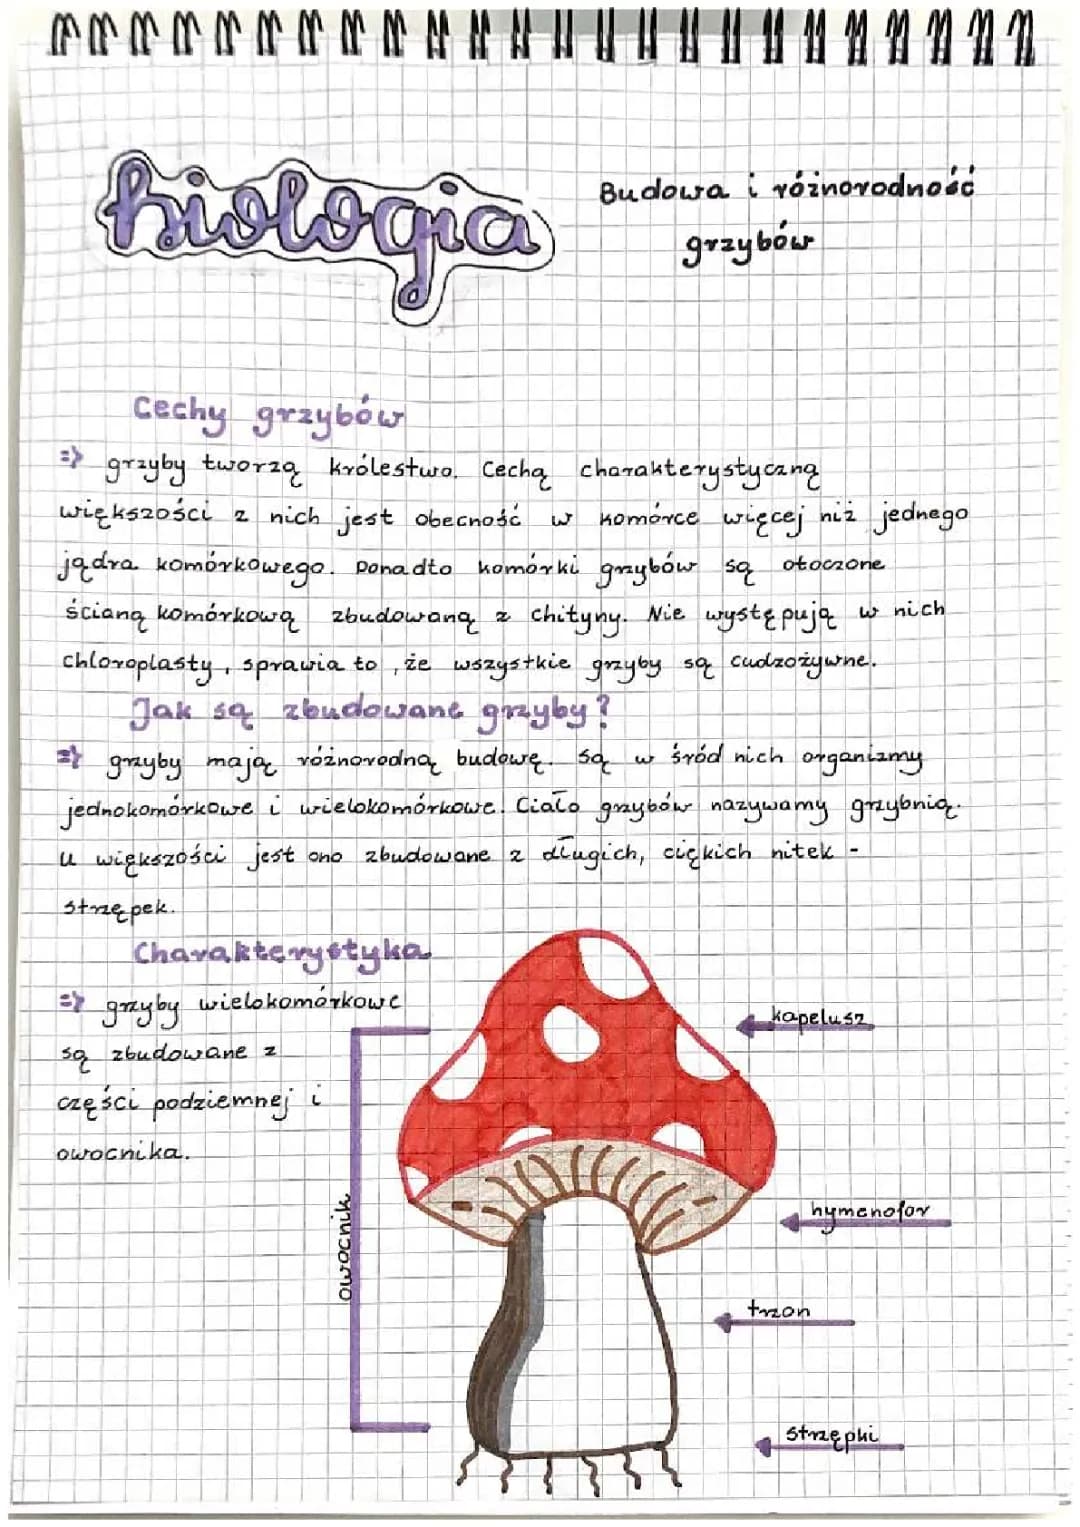 biologia
Budowa i różnorodność
grzybów
Cechy grzybów
=> grzyby tworzą królestwo. Cechą charakterystyczną
większości z nich jest obecność w komórce więcej niż jednego
jądra komórkowego. Ponadto komórki grzybów są otoczone
ścianą komórkową zbudowaną z chityny. Nie występują w nich
chloroplasty, sprawia to, że wszystkie grzyby są cudzożywne.
Jak są zbudowane grzyby?
=> grzyby mają różnorodną budowę. Są w śród nich organizmy
jednokomórkowe i wielokomórkowe. Ciało grzybów nazywamy grzybnią.
U większości jest ono zbudowane z długich, ciękich nitek -
strzępek.
Charakterystyka
=> grzyby wielokomórkowe
są zbudowane z
części podziemnej i
owocnika.
owocnik
kapelusz
hymenofor
trzon
strzępki